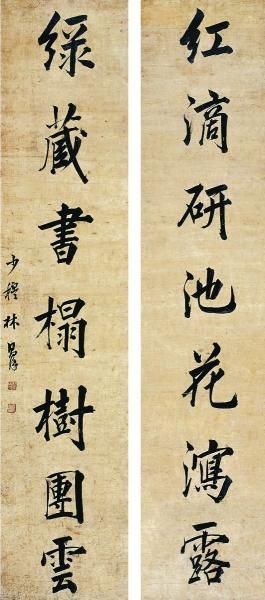 红滴研池花瀉露
綠藏書榻樹團雲
少穆林則徐